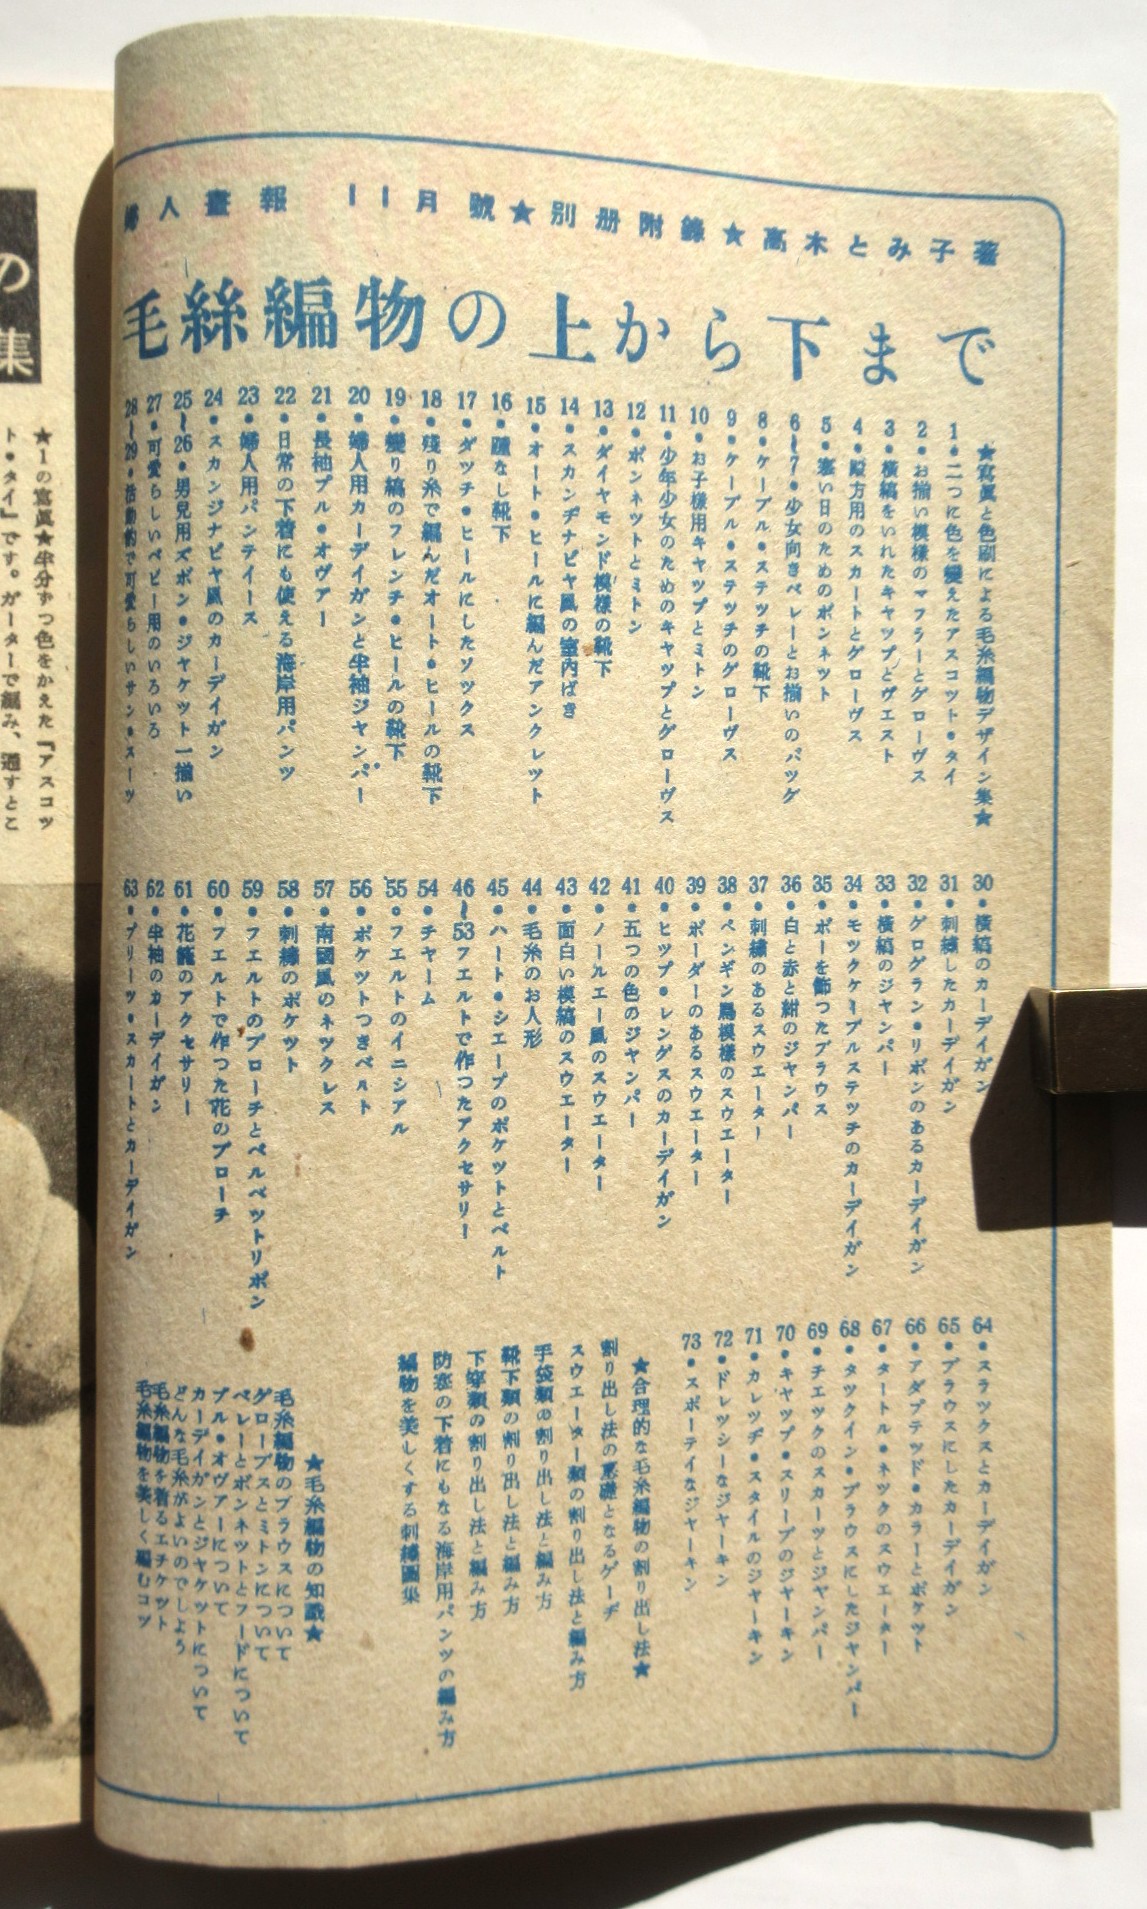 婦人畫報 11月號★別册附錄★高木とみ子著
毛絲編物の上から下まで
★寫眞と色刷による毛糸編物デザイン集★
1●二つに色を變えたアスコツト●タイ
2●お揃い模様のマフラーとグローヴス
3●橫縞をいれたキヤツプとヴエスト
4●殿方用のスカートとグローヴス
5●寒い日のためのボンネツト
6~7●少女向きベレーとお揃いのバツグ
8●ケーブル●ステツチの靴下
9●ケーブル●ステツチのグローヴス
10●お子樣用キヤツプとミトン
11●少年少女のためのキヤツプとグローヴス
12●ボンネツトとミトン
13●ダイヤモンド模樣の靴下
14●スカンヂナビヤ風の室內ばき
15●オート●ヒールに編んだアンクレツト
16●踵なし靴下
17●ダツチ●ヒールにしたソツクス
18●殘り糸で編んだオート●ヒールの靴下
19●變り縞のフレンチ●ヒールの靴下
20●婦人用カーデイガンと半袖ジヤンパー
21●長袖プル●オヴアー
22●日常の下着にも使える海岸用パンツ
23●婦人用パンテイース
24●スカンジナビヤ風のカーデイガン
25~26●男兒用ズボン●ジヤケツト一揃い
27●可愛らしいベビー用のいろいろ
28~29●活動的で可愛らしいサン●スーツ
30●橫縞のカーデイガン
31●刺繡したカーデイガン
32●グログラン●リボンのあるカーデイガン
33●橫縞のジヤンパー
34●モツクケーブルステツチのカーデイガン
35●ボーを飾つたブラウス
36●白と赤と紺のジヤンパー
37●刺繡のあるスウエーター
38●ペンギン鳥模樣のスウエーター
39●ボーダーのあるスウエーター
40●ヒツプ●レングスのカーデイガン
41●五つの色のジヤンパー
42●ノールエー風のスウエーター
43●面白い模縞のスウエーター
44●毛糸のお人形
45●ハート●シエープのポケツトとベルト
46~53フエルトで作つたアクセサリー
54●チヤーム
55●フエルトのイニシアル
56●ポケツトつきベルト
57●南國風のネツクレス
58●刺繡のポケツト
59●フエルトのブローチとベルベツトリボン
60●フエルトで作つた花のブローチ
61●花籠のアクセサリー
62●半袖のカーデイガン
63●プリーツ●スカートとカーデイガン
64●スラツクスとカーデイガン
65●ブラウスにしたカーデイガン
66●アダプテツド●カラーとポケツト
67●タートル●ネツクのスウエーター
68●タツクイン●ブラウスにしたジヤンパー
69●チエツクのスカーツとジヤンパー
70●キヤツプ●スリーブのジヤーキン
71●カレツヂ●スタイルのジヤーキン
72●ドレツシーなジヤーキン
73●スポーテイなジヤーキン
★合理的な毛糸編物の割り出し法★
割り出し法の基礎となるゲーヂ
スウエーター類の割り出し法と編み方
手袋類の割り出し法と編み方
靴下類の割り出し法と編み方
下穿類の割り出し法と編み方
防寒の下着にもなる海岸用パンツの編み方
編物を美しくする刺繡圖集
★毛糸編物の知識★
毛糸編物のブラウスについて
グローブスとミトンについて
ベレーとボンネツトとフードについて
プル●オヴアーについて
カーデイガンとジヤケツトについて
どんな毛糸がよいのでしよう
毛糸編物を着るエチケツト
毛糸編物を美しく編むコツ
の
集
★1の寫眞★半分ずつ色をかえた『アスコツ
ト●タイ』です。ガーターで編み、通すとこ